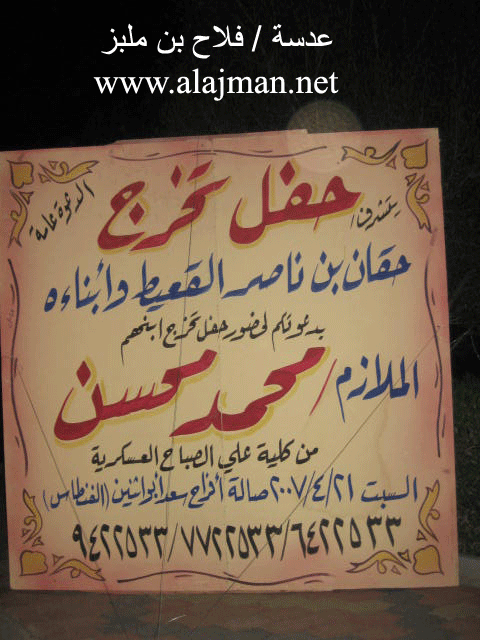 عدسة / فلاح بن ملبز
www.alajman.net
الدعوة عامة
حفل تخرج
يتشرف/
حقان بن ناصر القعيط وأبناءه
بدعوتكم لحضور حفل تخرج ابنهم
الملازم / محمد محسن
من كلية علي الصباح العسكرية
السبت ٢٠٠٧/٤/٢١ صالة أفراح سعد أبواثنين (الفنطاس)
٩٤٢٢٥٣٣/٧٧٢٢٥٣٣/٦٤٢٢٥٣٣